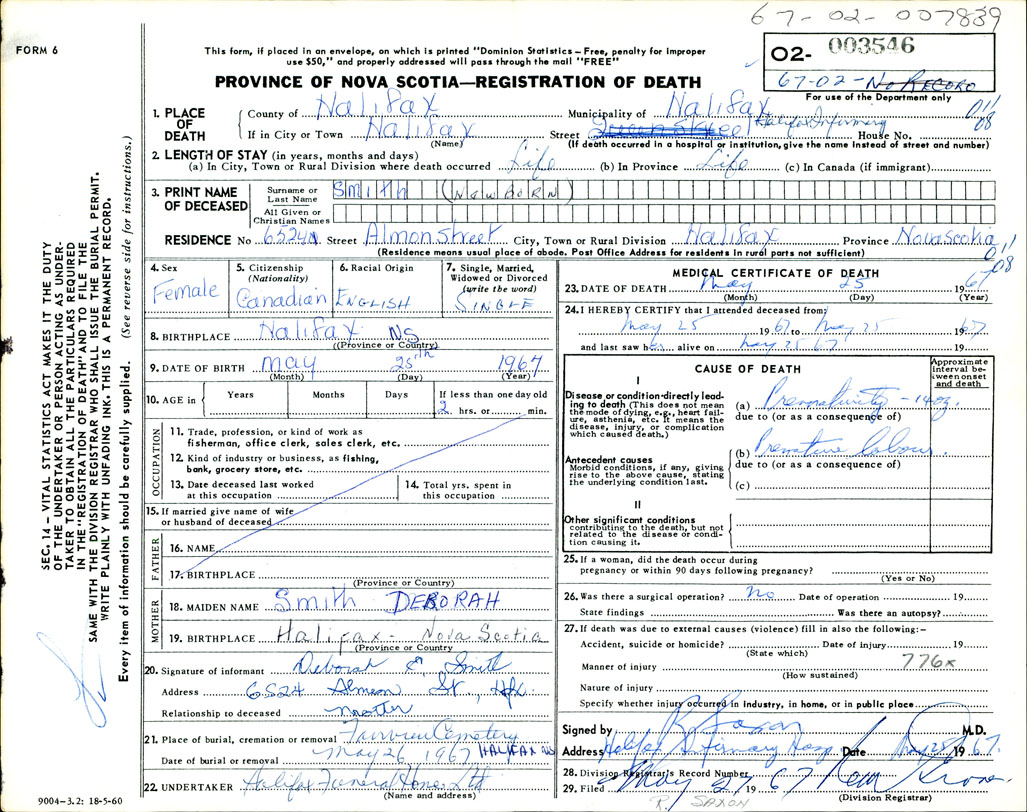 67-02-007839
FORM 6
This form, if placed in an envelope, on which is printed "Dominion Statistics—Free, penalty for improper
use $50," and properly addressed will pass through the mail "FREE"
02- 003546
67-02- No RECORD
For use of the Department only
PROVINCE OF NOVA SCOTIA—REGISTRATION OF DEATH
011
08
1. PLACE OF DEATH
County of Halifax Municipality of Halifax
If in City or Town Halifax Street Halifax Infirmary House No.
(Name) (If death occurred in a hospital or institution, give the name instead of street and number)
2. LENGTH OF STAY (in years, months and days)
(a) In City, Town or Rural Division where death occurred Life (b) In Province Life (c) In Canada (if immigrant)
3. PRINT NAME OF DECEASED
Surname or Last Name Smith (NEWBORN)
All Given or Christian Names
RESIDENCE No 6524 Street Almon Street City, Town or Rural Division Halifax Province Nova Scotia
(Residence means usual place of abode. Post Office Address for residents in rural parts not sufficient)
011
08
4. Sex Female
5. Citizenship (Nationality) Canadian
6. Racial Origin ENGLISH
7. Single, Married, Widowed or Divorced (write the word) SINGLE
8. BIRTHPLACE Halifax NS
(Province or Country)
9. DATE OF BIRTH May 25th 1967
(Month) (Day) (Year)
10. AGE in Years Months Days If less than one day old
2 hrs. or min.
OCCUPATION
11. Trade, profession, or kind of work as
fisherman, office clerk, sales clerk, etc.
12. Kind of industry or business, as fishing,
bank, grocery store, etc.
13. Date deceased last worked
at this occupation
14. Total yrs. spent in
this occupation
15. If married give name of wife
or husband of deceased
FATHER
16. NAME
17. BIRTHPLACE
(Province or Country)
MOTHER
18. MAIDEN NAME Smith DEBORAH
19. BIRTHPLACE Halifax - Nova Scotia
(Province or Country)
20. Signature of informant Deborah E. Smith
Address 6524 Almon St., Hfx.
Relationship to deceased Mother
21. Place of burial, cremation or removal Fairview Cemetery
Date of burial or removal May 26, 1967 HALIFAX NS
22. UNDERTAKER Halifax Funeral Home Ltd
(Name and address)
MEDICAL CERTIFICATE OF DEATH
23. DATE OF DEATH May 25 1967
(Month) (Day) (Year)
24. I HEREBY CERTIFY that I attended deceased from:
May 25 1967 to May 25 1967
and last saw her alive on May 25 67 19
CAUSE OF DEATH
Approximate interval between onset and death
I
Disease or condition directly leading to death (This does not mean the mode of dying, e.g., heart failure, asthenia, etc. It means the disease, injury, or complication which caused death.)
(a) Prematurity - 14oz.
due to (or as a consequence of)
Antecedent causes
Morbid conditions, if any, giving rise to the above cause, stating the underlying condition last.
(b) Premature labour.
due to (or as a consequence of)
(c)
II
Other significant conditions
contributing to the death, but not related to the disease or condition causing it.
25. If a woman, did the death occur during
pregnancy or within 90 days following pregnancy?
(Yes or No)
26. Was there a surgical operation? No Date of operation 19
State findings Was there an autopsy?
27. If death was due to external causes (violence) fill in also the following:—
Accident, suicide or homicide? Date of injury 19
(State which)
Manner of injury 776x
(How sustained)
Nature of injury
Specify whether injury occurred in Industry, in home, or in public place
Signed by R Saxon M.D.
Address Halifax Infirmary Hosp Date May 25 1967.
28. Division Registrar's Record Number
29. Filed May 27 1967
(Division Registrar)
R. SAXON
SEC. 14 – VITAL STATISTICS ACT MAKES IT THE DUTY
OF THE UNDERTAKER OR PERSON ACTING AS UNDER-
TAKER TO OBTAIN ALL THE PARTICULARS REQUIRED
IN THE "REGISTRATION OF DEATH" AND TO FILE THE
SAME WITH THE DIVISION REGISTRAR WHO SHALL ISSUE THE BURIAL PERMIT.
WRITE PLAINLY WITH UNFADING INK. THIS IS A PERMANENT RECORD.
Every item of information should be carefully supplied. (See reverse side for instructions.)
9004–3.2: 18-5-60